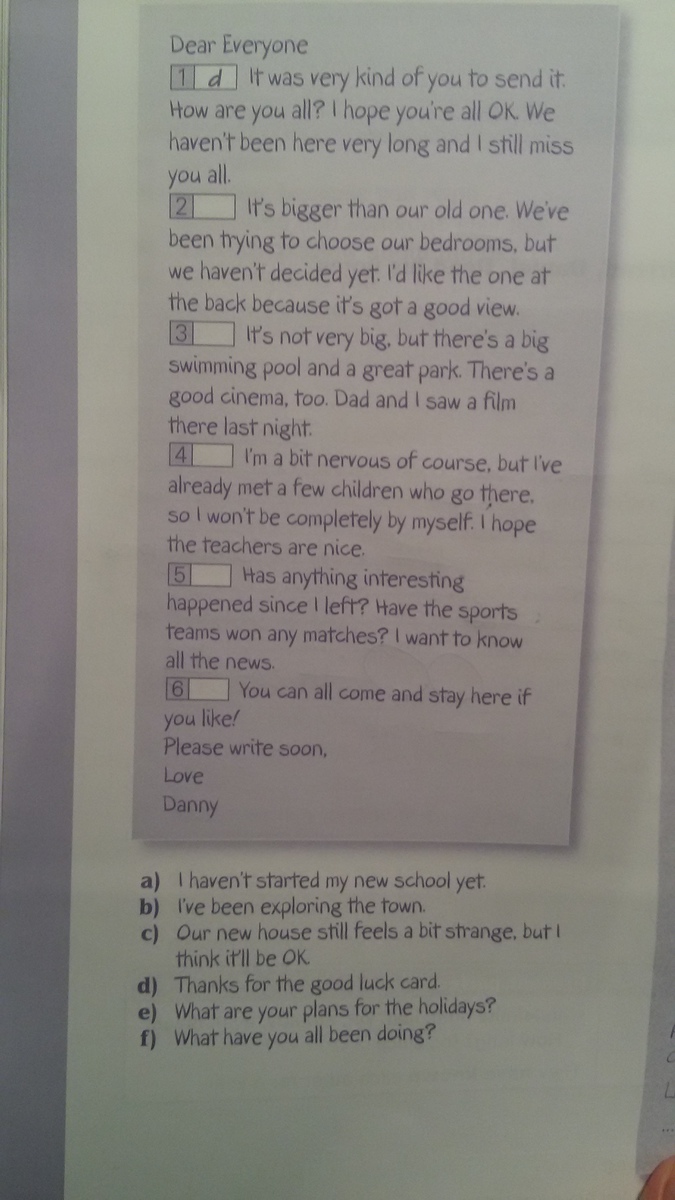 Dear Everyone
1 d It was very kind of you to send it.
How are you all? I hope you're all OK. We
haven't been here very long and I still miss
you all.
2 It's bigger than our old one. We've
been trying to choose our bedrooms, but
we haven't decided yet. I'd like the one at
the back because it's got a good view.
3 It's not very big, but there's a big
swimming pool and a great park. There's a
good cinema, too. Dad and I saw a film
there last night.
4 I'm a bit nervous of course, but I've
already met a few children who go there,
so I won't be completely by myself. I hope
the teachers are nice.
5 Has anything interesting
happened since I left? Have the sports
teams won any matches? I want to know
all the news.
6 You can all come and stay here if
you like!
Please write soon,
Love
Danny
a) I haven't started my new school yet.
b) I've been exploring the town.
c) Our new house still feels a bit strange, but I
think it'll be OK.
d) Thanks for the good luck card.
e) What are your plans for the holidays?
f) What have you all been doing?